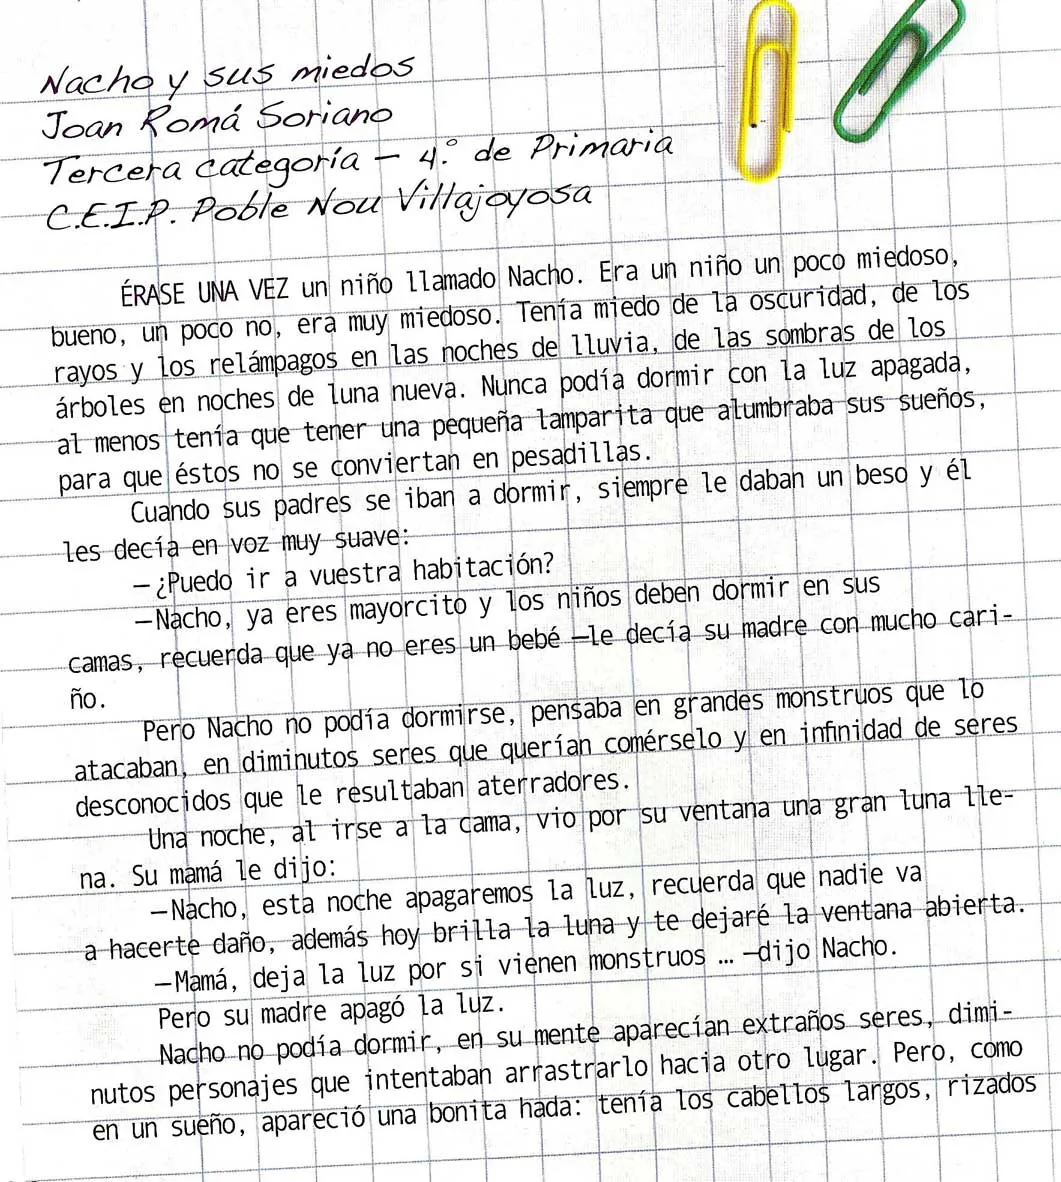 Nacho y sus miedos
Joan Romá Soriano
Tercera categoría – 4.º de Primaria
C.E.I.P. Poble Nou Villajoyosa
ÉRASE UNA VEZ un niño llamado Nacho. Era un niño un poco miedoso,
bueno, un poco no, era muy miedoso. Tenía miedo de la oscuridad, de los
rayos y los relámpagos en las noches de lluvia, de las sombras de los
árboles en noches de luna nueva. Nunca podía dormir con la luz apagada,
al menos tenía que tener una pequeña lamparita que alumbraba sus sueños,
para que éstos no se conviertan en pesadillas.
Cuando sus padres se iban a dormir, siempre le daban un beso y él
les decía en voz muy suave:
—¿Puedo ir a vuestra habitación?
—Nacho, ya eres mayorcito y los niños deben dormir en sus
camas, recuerda que ya no eres un bebé —le decía su madre con mucho cari-
ño.
Pero Nacho no podía dormirse, pensaba en grandes monstruos que lo
atacaban, en diminutos seres que querían comérselo y en infinidad de seres
desconocidos que le resultaban aterradores.
Una noche, al irse a la cama, vio por su ventana una gran luna lle-
na. Su mamá le dijo:
—Nacho, esta noche apagaremos la luz, recuerda que nadie va
a hacerte daño, además hoy brilla la luna y te dejaré la ventana abierta.
—Mamá, deja la luz por si vienen monstruos ... —dijo Nacho.
Pero su madre apagó la luz.
Nacho no podía dormir, en su mente aparecían extraños seres, dimi-
nutos personajes que intentaban arrastrarlo hacia otro lugar. Pero, como
en un sueño, apareció una bonita hada: tenía los cabellos largos, rizados